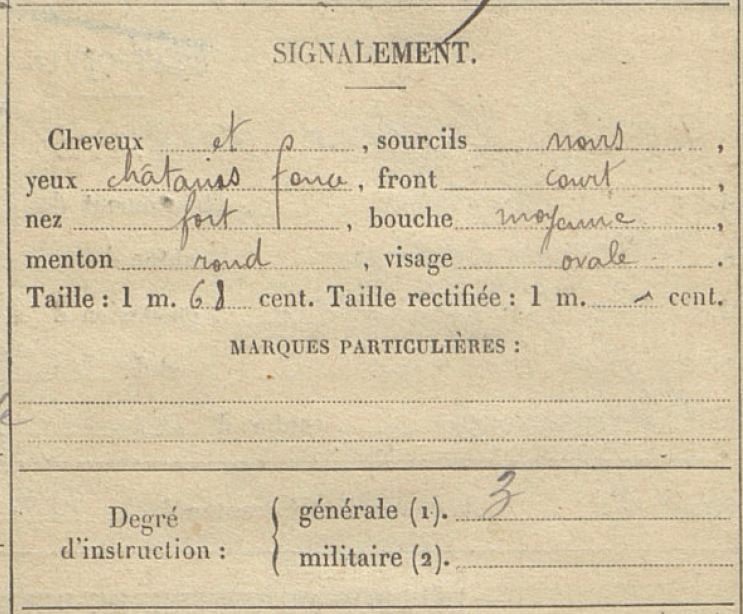 SIGNALEMENT.
Cheveux et , sourcils noirs ,
yeux châtains foncé , front court ,
nez fort , bouche moyenne ,
menton rond , visage ovale .
Taille : 1 m. 68 cent. Taille rectifiée : 1 m. cent.
MARQUES PARTICULIÈRES :
Degré d'instruction :
générale (1). 3
militaire (2).